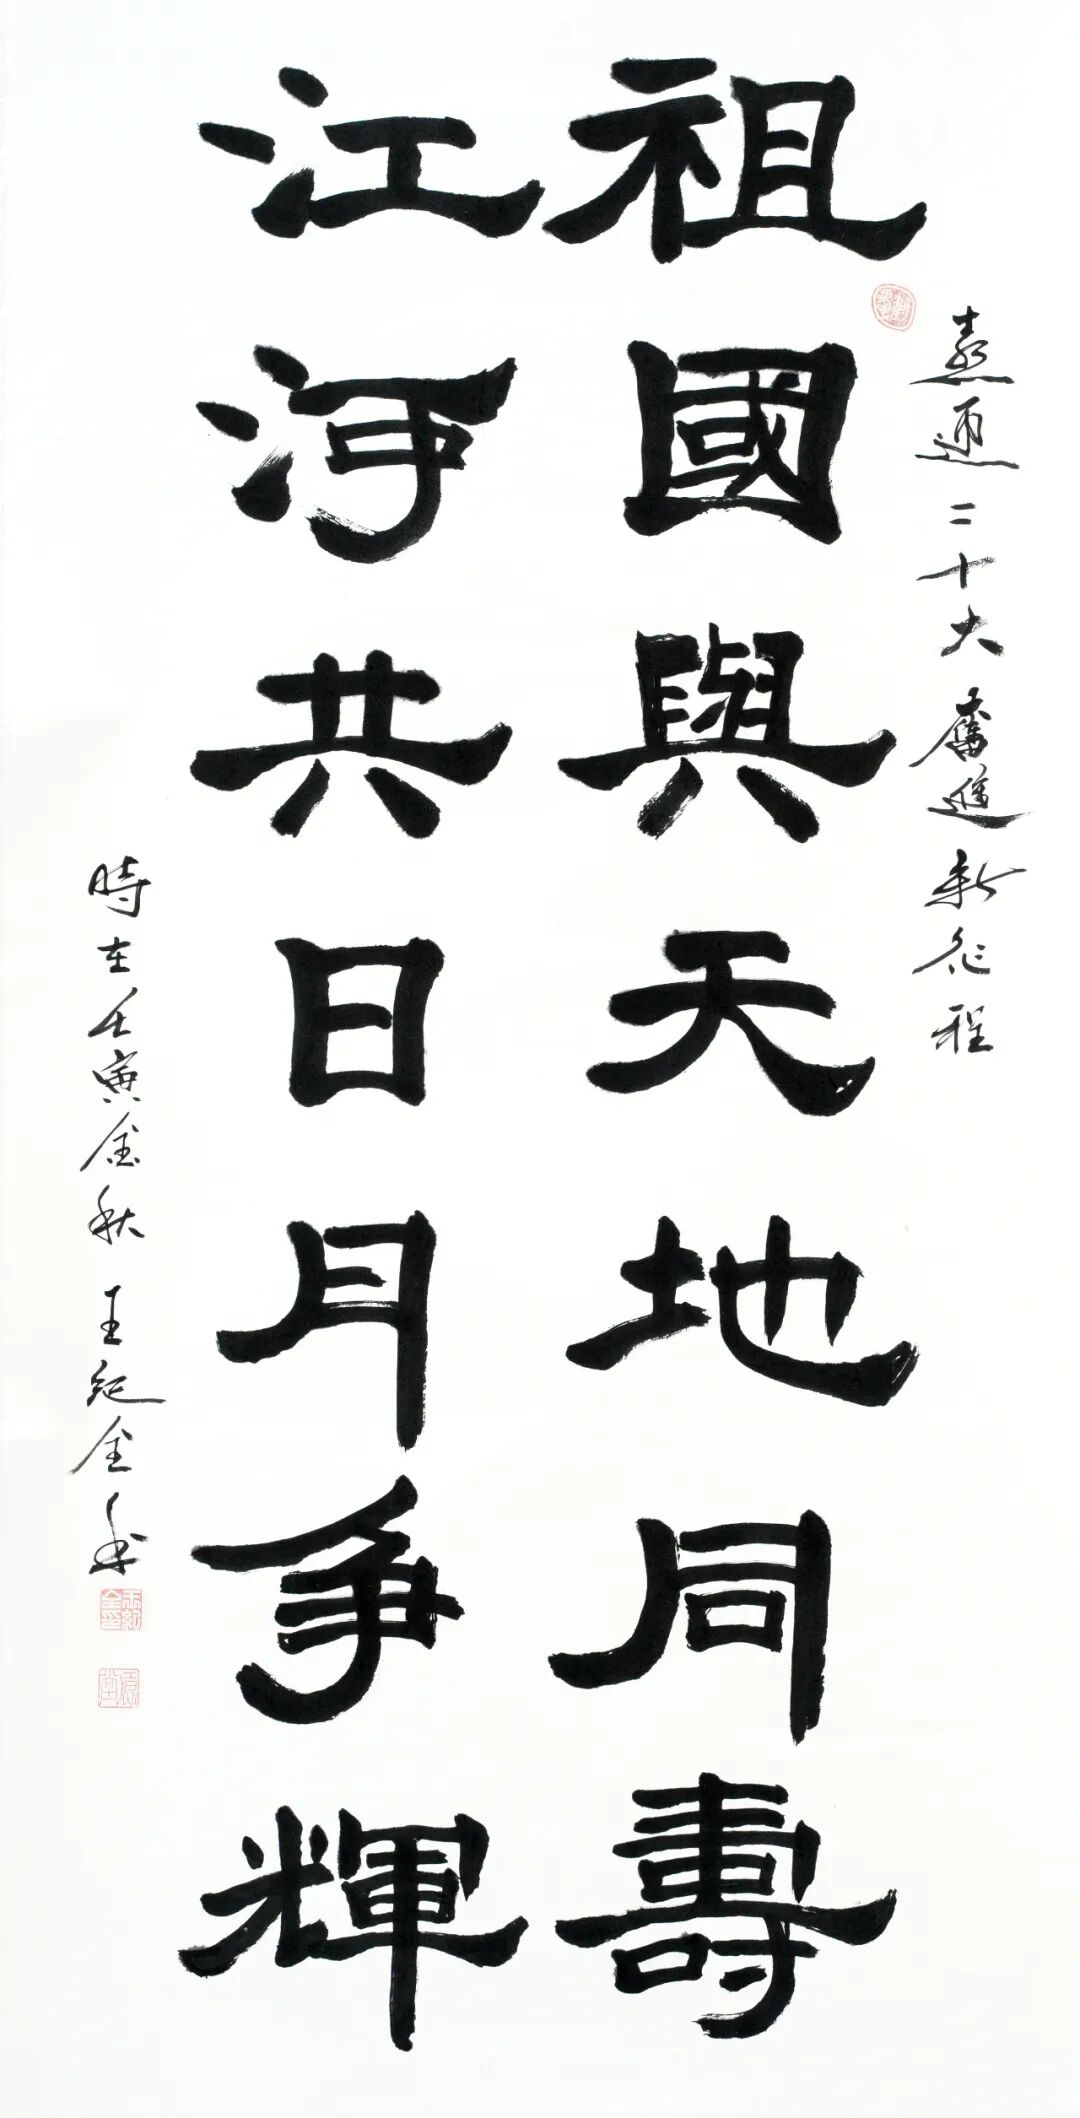 喜迎二十大奮進新征程
祖國與天地同壽
江河共日月争輝
時在壬寅金秋王纪金書